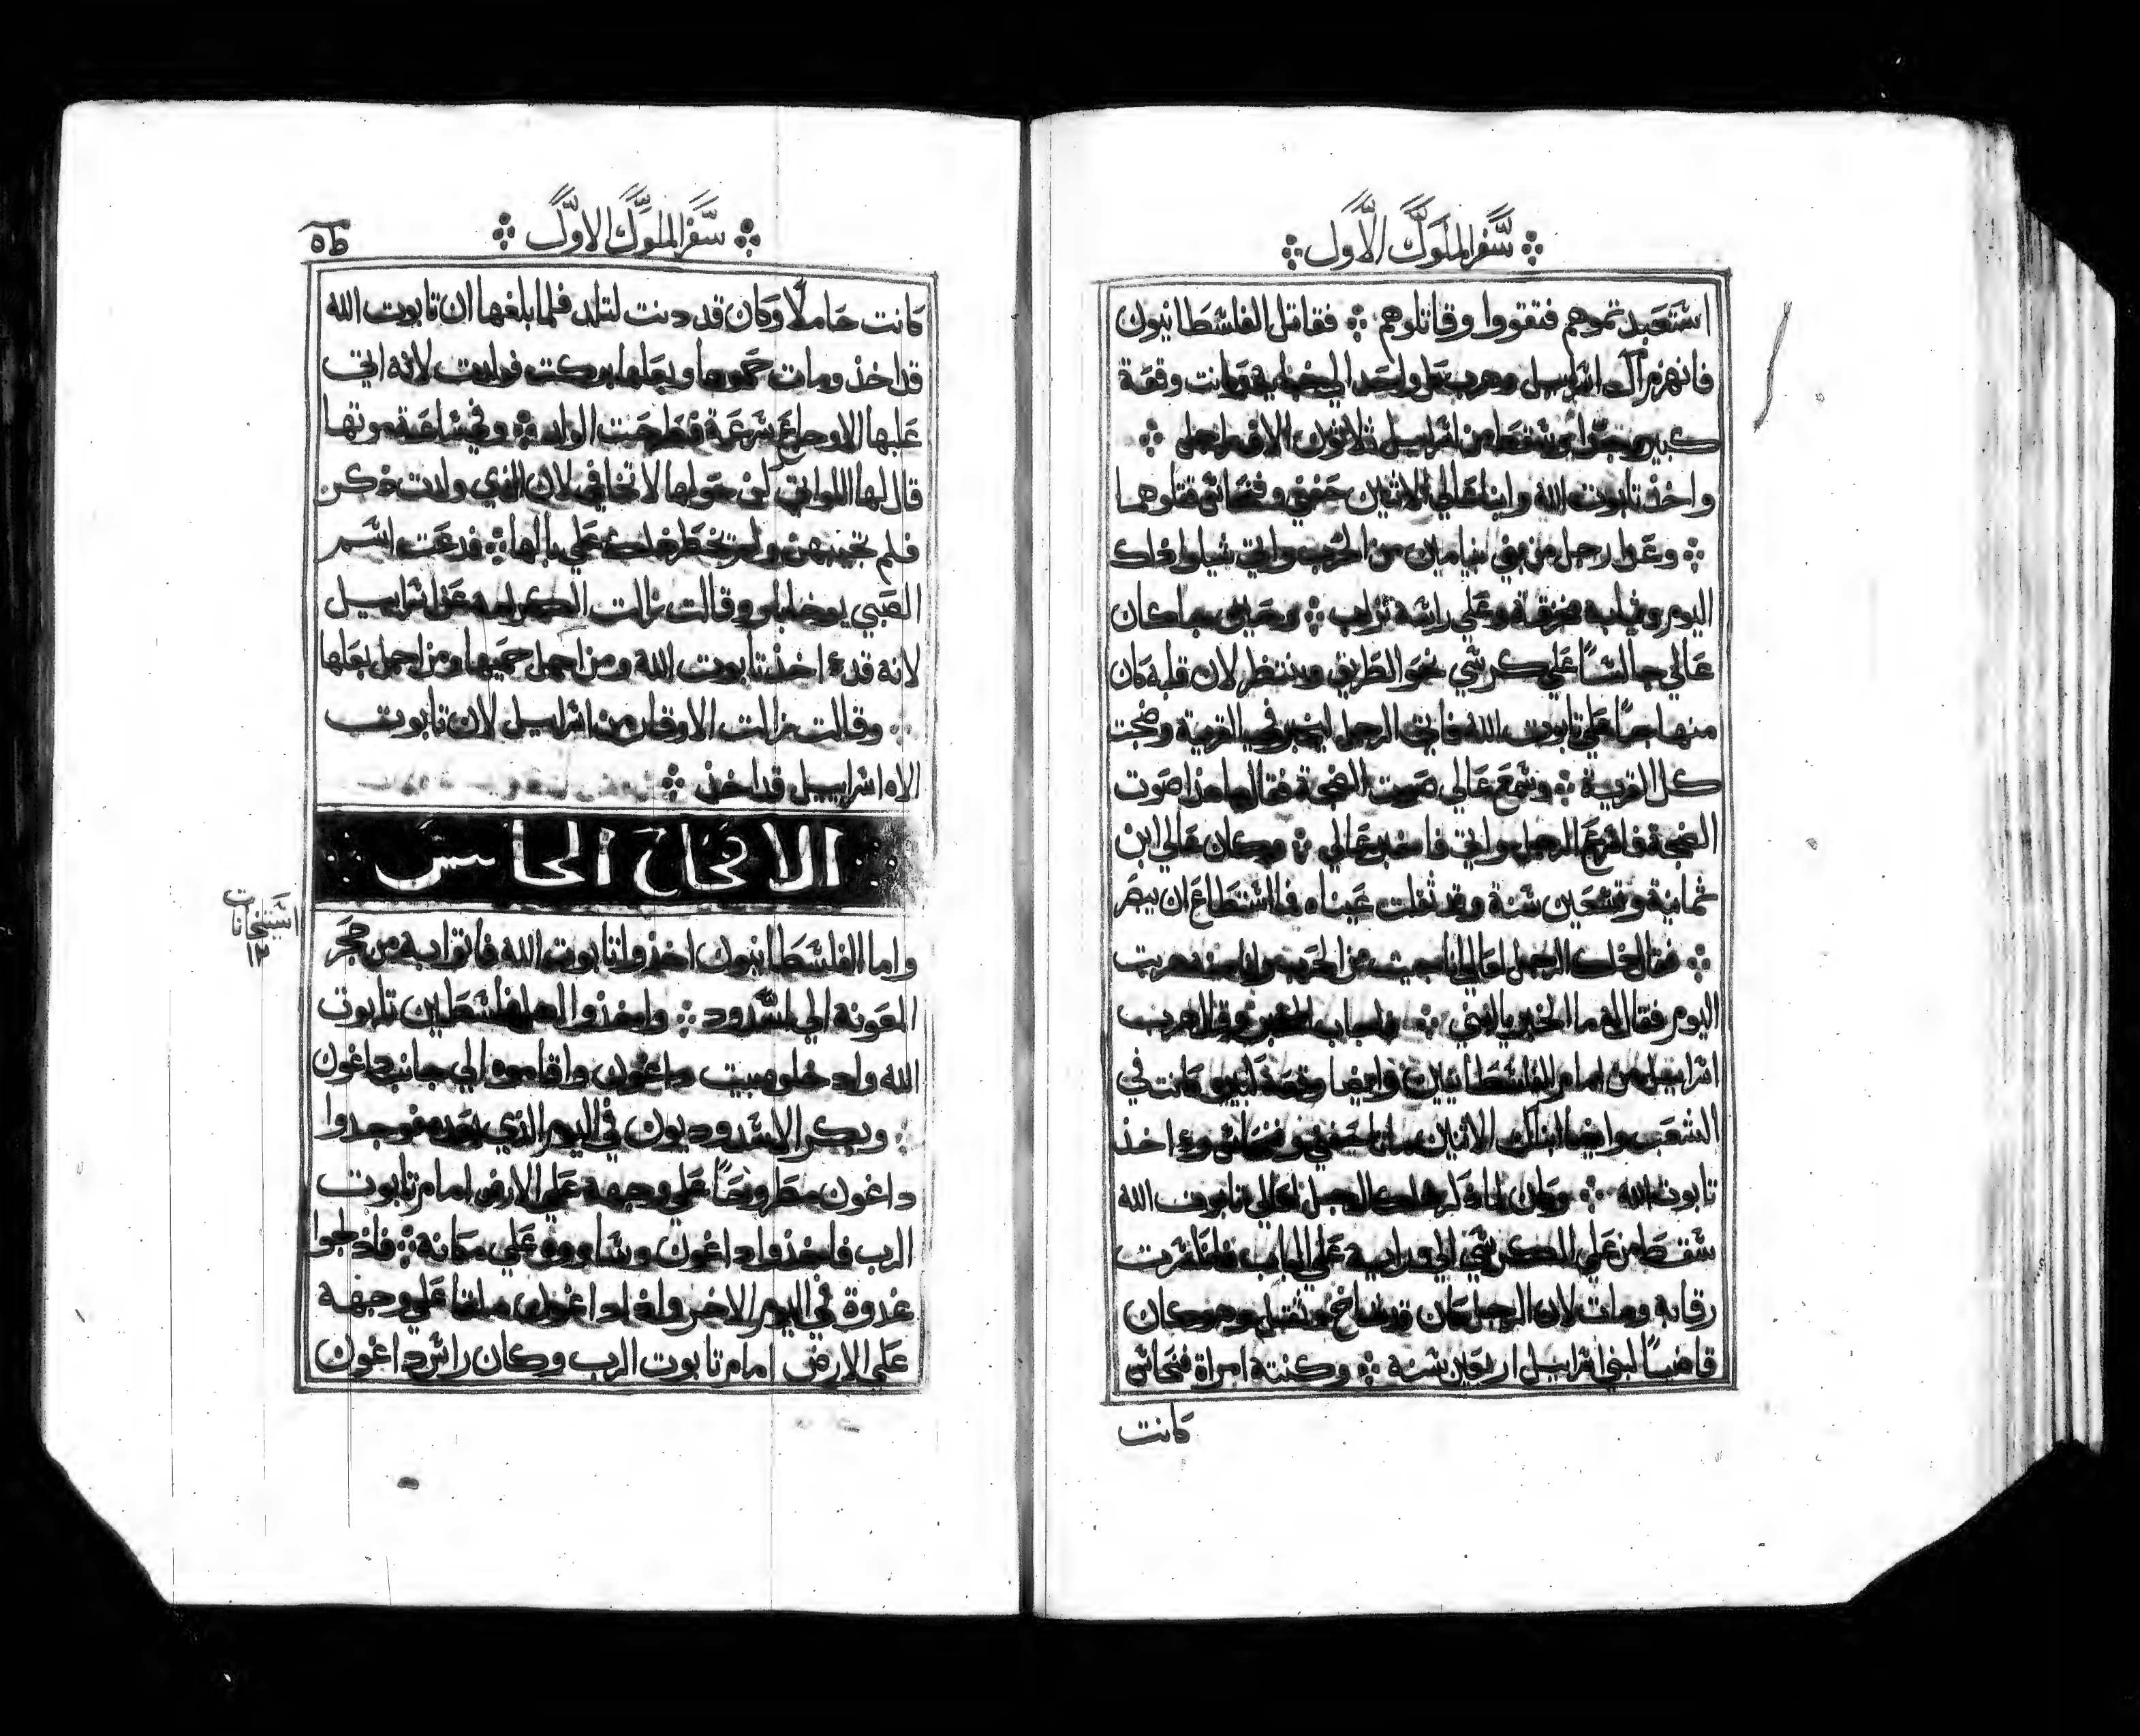 سفر الملوك الاول
استعبدتموهم فتقووا وقاتلوهم ܀ فقاتل الفلسطانيون
فانهزم آل اسراييل وهرب كل واحد الي خبايه وكانت وقعة
كبيره جدًا وسقط من اسراييل ثلاثون الاف راجل ܀
واخذ تابوت الله وابنا عالي الاثنين حفني وفنحاس قتلوهما
܀ وعدا رجل من بني بنيامين من الحرب واتي شيلوا ذلك
اليوم وثيابه مخرقة وعلي راسه تراب ܀ وحين جا كان
عالي جالسًا علي كرسي نحو الطريق وينتظر لان قلبه كان
علي تابوت الله فاتي الرجل ليخبر في القرية وضجت
كل القرية ܀ وسمع عالي صوت الضجة فقال ما هذا صوت
الضجة فاسرع الرجل واتي فاخبر عالي ܀ وكان عالي ابن
ثمانية وتسعين سنة وقد ثقلت عيناه فما استطاع ان يبصر
܀ فقال ذلك الرجل لعالي انا جيت من الحرب وانا منه هربت
اليوم فقال له ما الخبر يا ابني ܀ فاجاب المخبر وقال هرب
اسراييل من امام الفلسطانيين وايضا كانت في
الشعب وايضا ابناك الاثنين ماتا حفني وفنحاس وءاخذ
تابوت الله ܀ وكان لما ذكر ذلك الرجل لعالي تابوت الله
سقط من علي الكرسي الي ورايه علي الباب فانكسرت
رقابه ومات لان الرجل كان قد شاخ وثقل وهو كان
قاضيًا لبني اسراييل اربعين سنة ܀ وكنته امراة فنحاس
كانت
سفر الملوك الاول
كانت حاملًا وكان قد دنت لتلد فلما بلغها ان تابوت الله
قد اخذ ومات حموها وبعلها بركت فولدت لانه اتي
عليها الاوجاع سرعة فطرحت الولد ܀ وفي ساعة موتها
قال لها اللواتي كن حولها لا تخافي لان الذي ولدت ذكر
فلم تجيبهن ولم تخطر ذلك علي بالها ܀ فدعت اسم
الصبي وقالت زالت الكرامه عن اسراييل
لانه قدء اخذ تابوت الله ومن اجل حميها ومن اجل بعلها
܀ وقالت زالت الاوقار من اسراييل لان تابوت
الاه اسراييل قد اخذ ܀
الاصحاح الخامس
واما الفلسطانيون اخذوا تابوت الله فاتوا به من حجر
المعونه الي اشدود ܀ واخذوا الفلسطين تابوت
الله وادخلوه بيت داغون واقاموه الي جانب داغون
܀ وبكر الاشدوديون في اليوم الذي بعده فوجدوا
داغون مطروحًا علي وجهه علي الارض امام تابوت
الرب فاخذوا داغون وساووه علي مكانه ܀ فادلجوا
غدوة في اليوم الاخر واذا داغون ملقا علي وجهه
علي الارض امام تابوت الرب وكان راس داغون